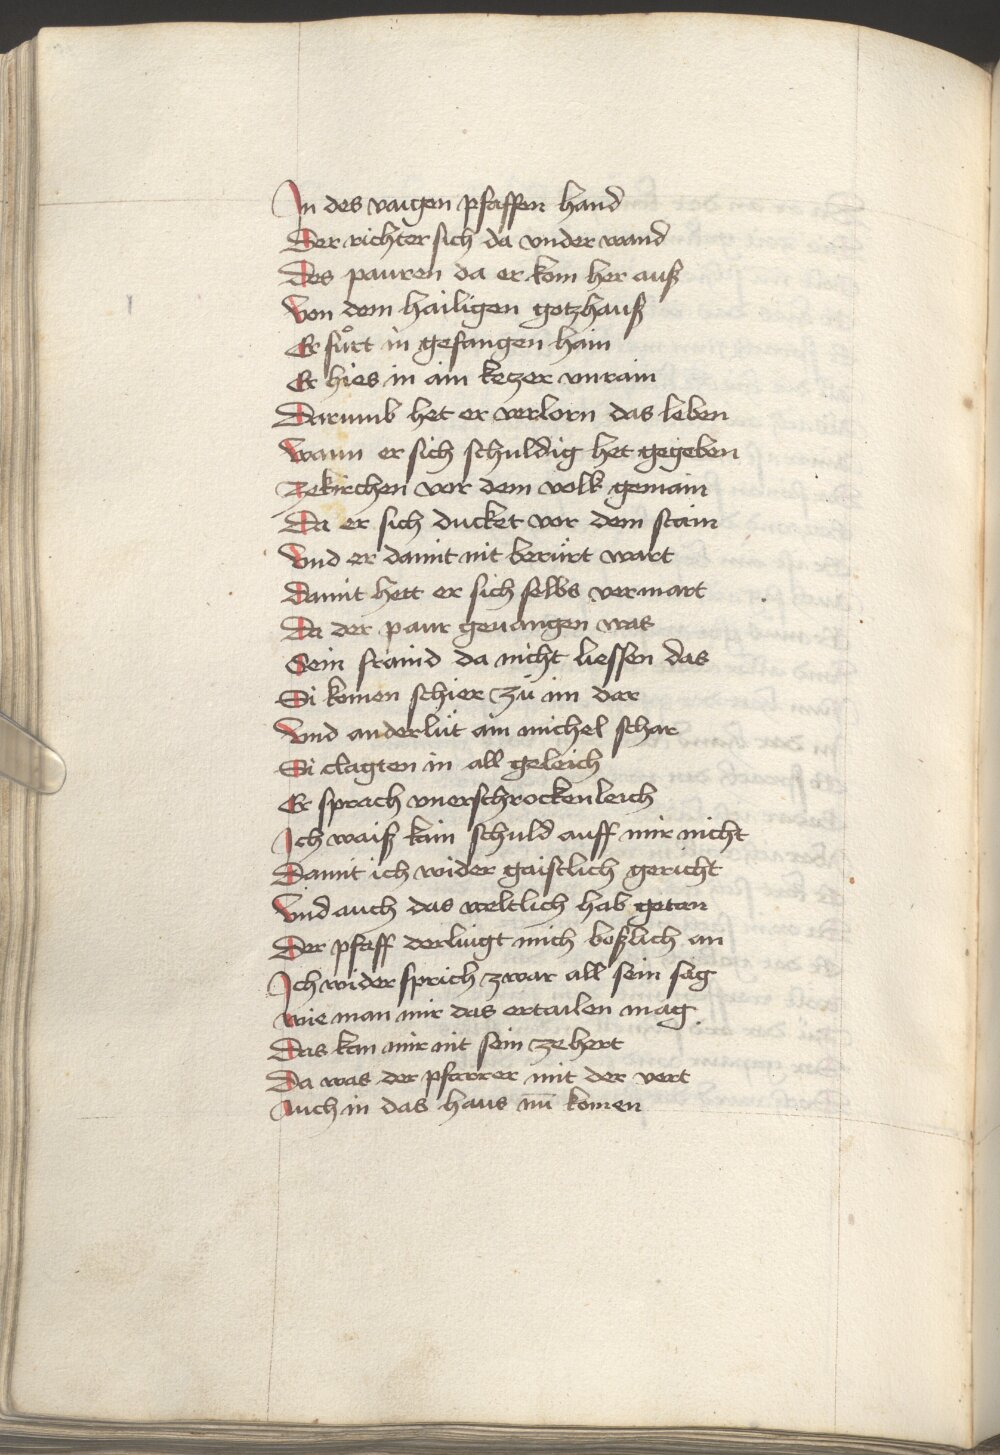 In des vaigen pfaffen hand
Der richter sich da vnder wand
Des pauren da er kom her auß
Von dem hailigen gotzhauß
Er fůrt in gefangen hain
Er hies in ain ketzer vnrain
Darumb het er verlorn das leben
Wann er sich schuldig het gegeben
Zekirchen vor dem volk gemain
Da er sich ducket vor dem stain
Vnd er damit nit berürt wart
Damit hett er sich selbs vermart
Da der paur geuangen was
Sein fraind da nicht liessen das
Si komen schier zü im dar
Vnd anderlüt ain michel schar
Si clagten in all geleich
Er sprach vnerschrockenleich
Ich waiß kain schuld auff mir nicht
Damit ich wider gaistlich gericht
Vnd auch das weltlich hab getan
Der pfaff derluigt mich boßlich an
Ich wider sprich zwar all sein sag
Wie man mir das ertailen mag
Das kan mir nit sein ze hert
Da was der pfarrer mit der vert
Auch in das haus nū komen